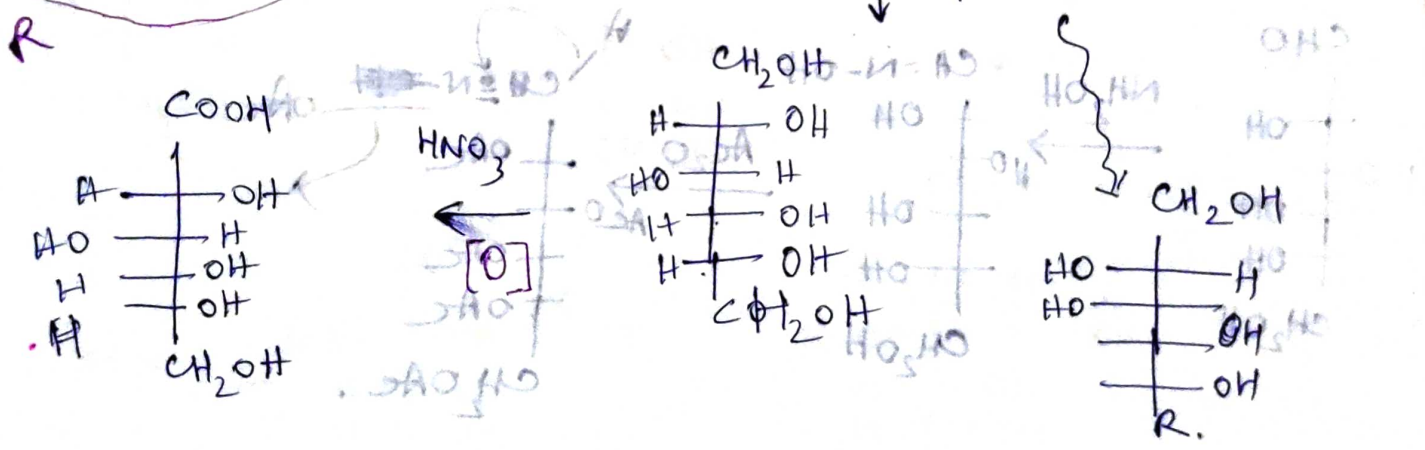 R
COOH
H OH
HO H
H OH
H OH
CH₂OH
HNO₃
[O]
CH₂OH
H OH
HO H
H OH
H OH
CH₂OH
CH₂OH
HO H
HO
OH
OH
R.